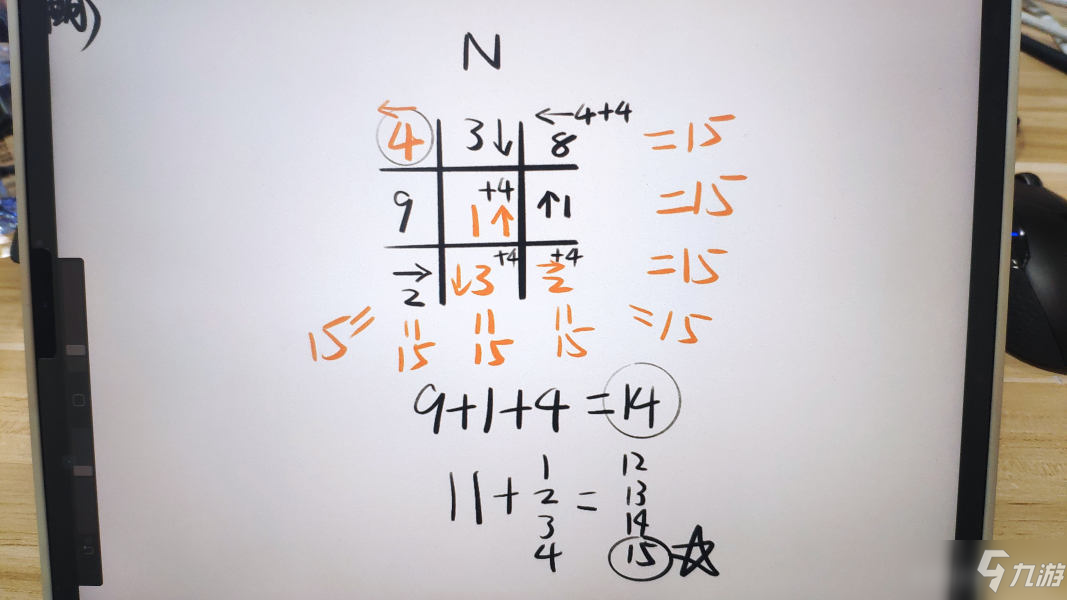 N
←4+4
4 3↓ 8 =15
+4
9 1↑ ↑1 =15
+4 +4
→2 ↓3 →2 =15
15= =15
|| || ||
15 15 15
9+1+4=14
11+ 1 2 3 4 = 12 13 14 15
九游